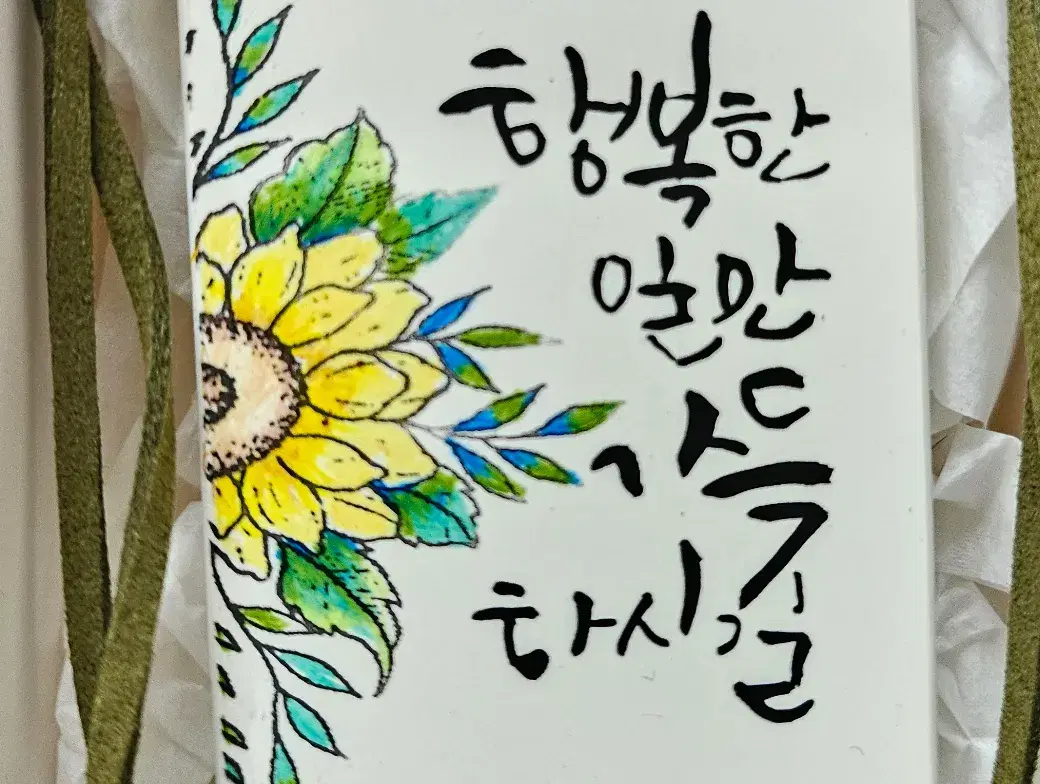 행복한
일만
가득
하시길